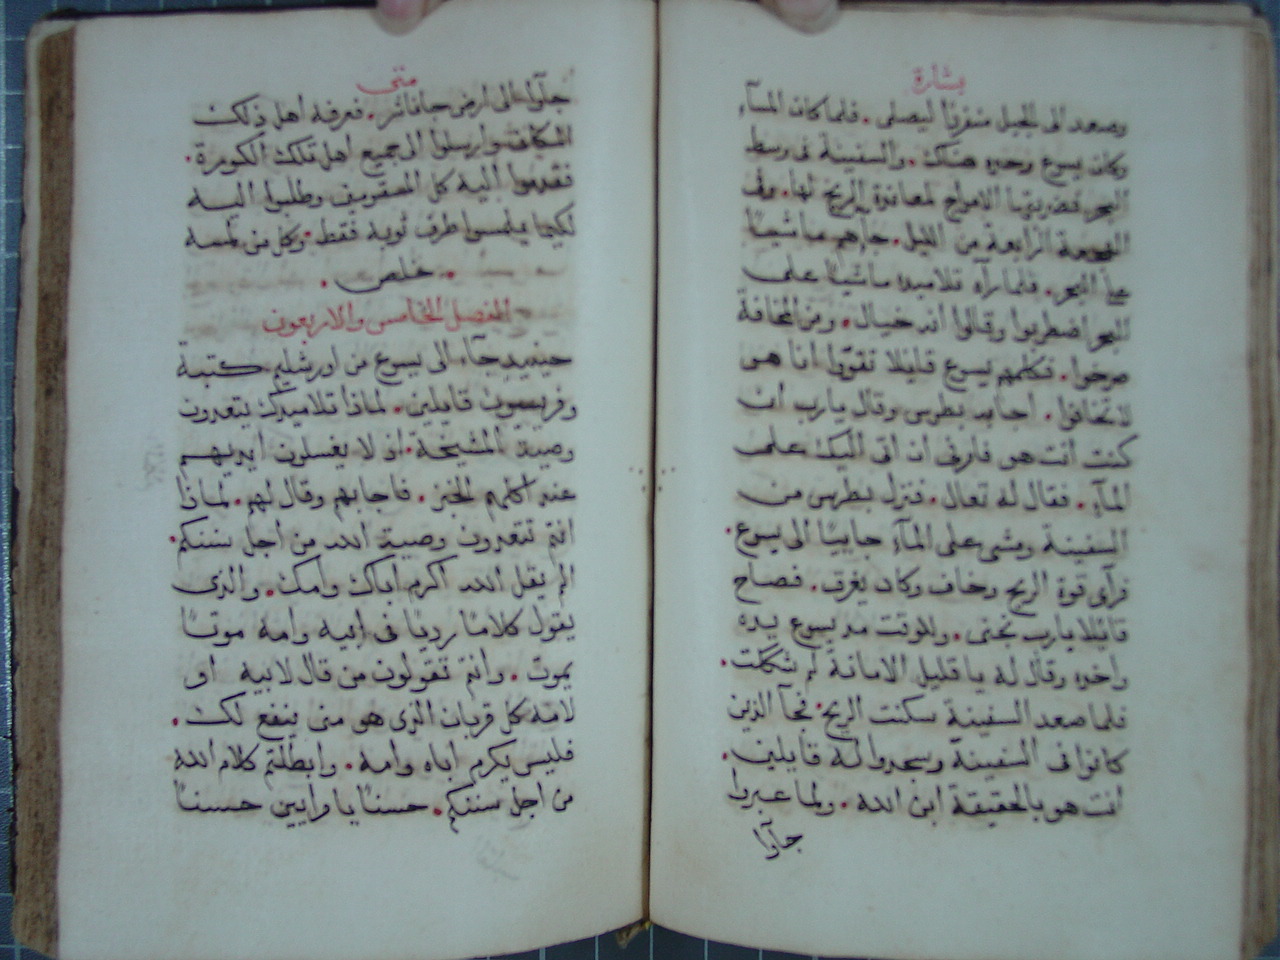 بشارة
وصعد الى الجبل منفردًا ليصلى . فلما كان المسآء
وكان يسوع وحده هناك . والسفينة فى وسط
البحر فضربتها الامواج لمعاندة الريح لها . وفى
الهجعة الرابعة من الليل . جآهم ماشيًا
على البحر . فلما رآه تلاميده ماشيًا على
البحر اضطربوا وقالوا انه خيال . ومن المخافة
صرخوا . فكلمهم يسوع قايلا تقوّوا انا هو
لا تخافوا . اجابه بطرس وقال يا رب ان
كنت انت هو فامرنى ان اتى اليك على
المآء . فقال له تعال . فنزل بطرس من
السفينة ومشى على المآء جاييًا الى يسوع .
فرآى قوة الريح وخاف وكاد يغرق . فصاح
قايلا يا رب نجنى . وللوقت مد يسوع يده
واخده وقال له يا قليل الامانة لم شككت .
فلما صعد السفينة سكنت الريح . فجآ الذين
كانوا فى السفينة وسجدوا له قايلين .
انت هو بالحقيقة ابن الله . ولما عبروا
جآوا
متى
جآوا الى ارض جاناشر . فعرفه اهل ذلك
المكان وارسلوا الى جميع اهل تلك الكورة .
فقدموا اليه كل المسقومين وطلبوا اليه
لكيما يلمسوا طرف ثوبه فقط . وكل من لمسه
. خلص .
الفصل الخامس والاربعون
حينيد جآء الى يسوع من اورشليم كتبة
وفريسيون قايلين . لماذا تلاميدك يتعدون
وصية المشيخة . اذ لا يغسلون ايديهم
عند اكلهم الخبز . فاجابهم وقال لهم . لماذا
انتم تتعدون وصية الله من اجل سننكم .
الم يقل الله اكرم اباك وامك . والذى
يقول كلامًا رديًا فى ابيه وامه موتًا
يموت . وانتم تقولون من قال لابيه او
لامه كل قربان الذى هو منى ينفع لك .
فليس يكرم اباه وامه . وابطلتم كلام الله
من اجل سننكم . حسنًا يا مرايين حسنًا